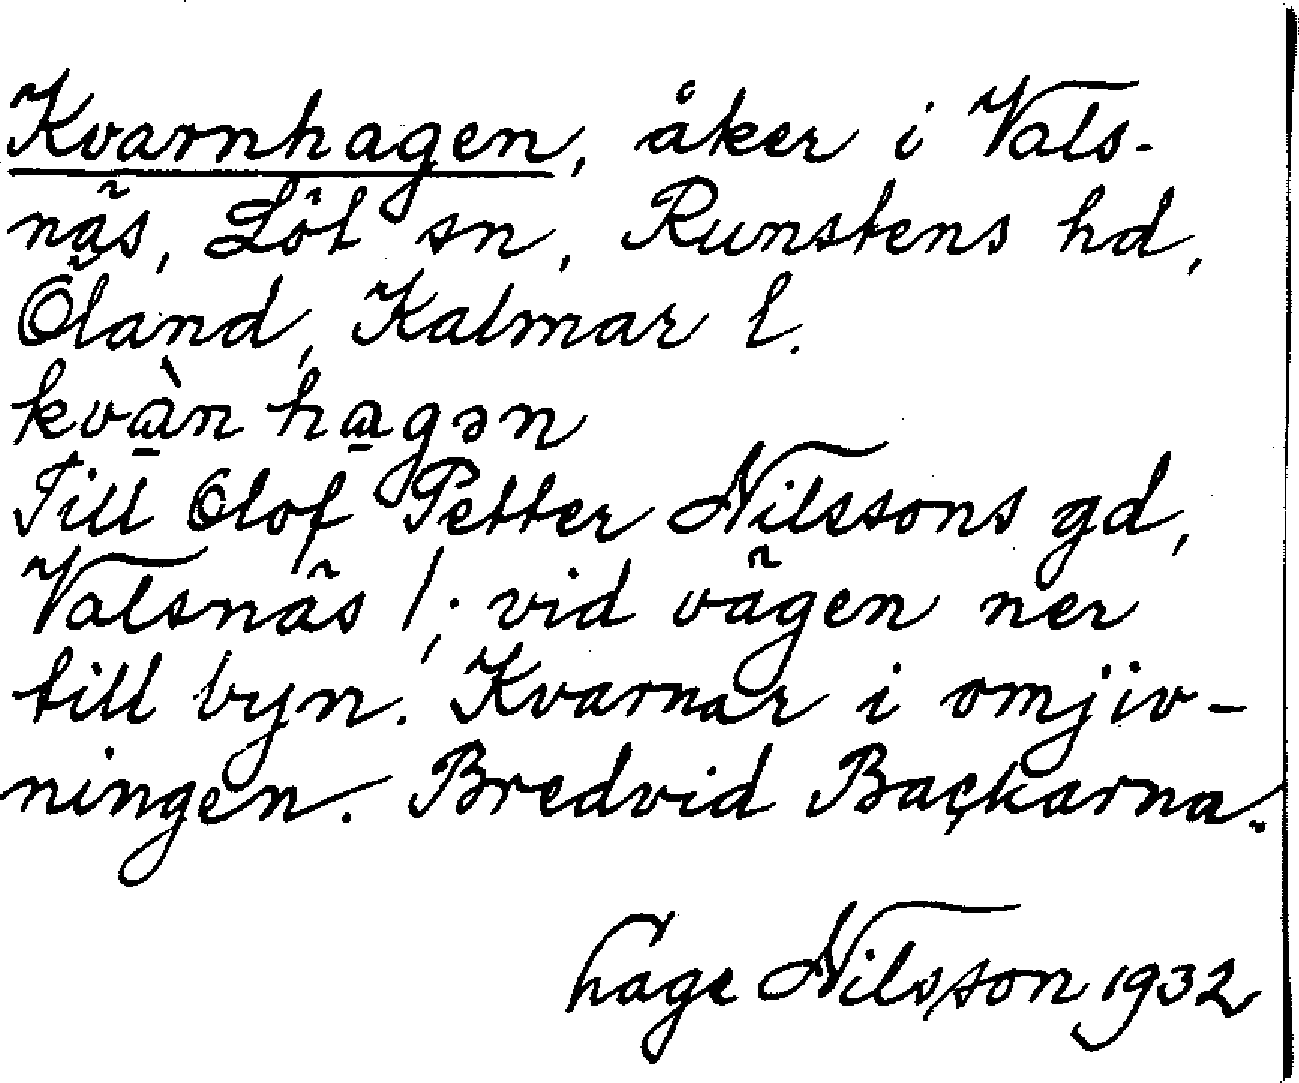 Kvarnhagen, åker i Vals-
näs, Löt sn, Runstens hd,
Öland, Kalmar l.
kvàn hagən
Till Olof Petter Nilssons gd,
Valsnäs 1; vid vägen ner
till byn. Kvarnar i omjiv-
ningen. Bredvid Backarna.
Hage Nilsson 1932